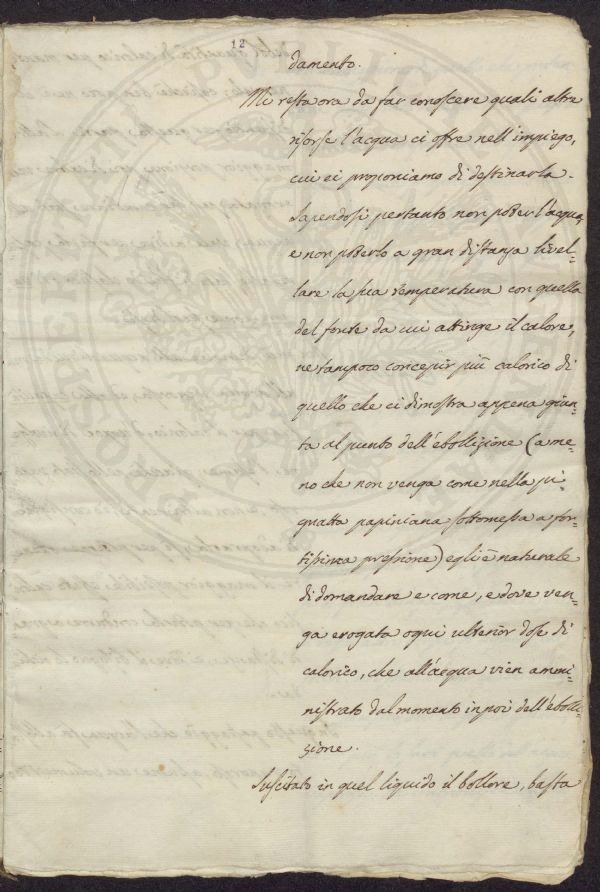 12
damento.
Mi resta ora da far conoscere quali altre
risorse l'acqua ci offre nell'impiego,
cui ci proponiamo di destinarla.
Sapendosi pertanto non poter l'acqua,
e non poterlo a gran distanza livel=
lare la sua temperatura con quella
del fonte da cui attinge il calore,
ne tampoco concepir più calorico di
quello che ci dimostra appena giun=
ta al punto dell'ebollizione (a me=
no che non venga come nella pi=
gnatta papiniana sottomessa a for=
tissima pressione) egli è naturale
di domandare e come, e dove ven=
ga erogata ogni ulterior dose di
calorico, che all'acqua vien ammi=
nistrato dal momento in poi dell'ebolli=
zione.
Suscitato in quel liquido il bollore, basta